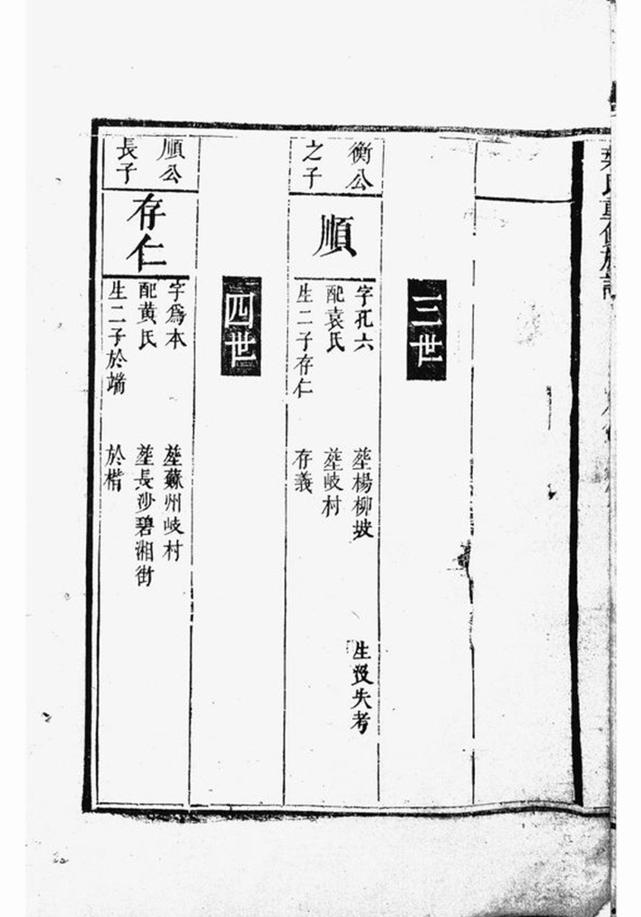 三世
衡公
之子
順
字孔六 塟楊柳坡 生殁失考
配袁氏 塟岐村
生二子存仁 存義
四世
順公
長子
存仁
字爲本 塟蘇州岐村
配黄氏 塟長沙碧湘街
生二子於端 於楷